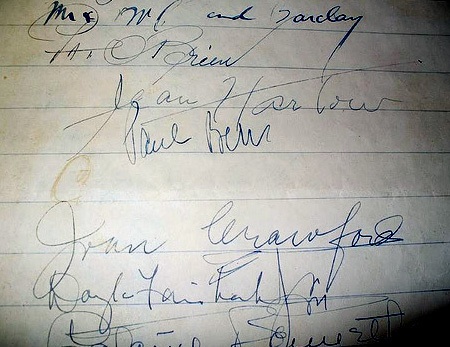 Mrs and Barclay
O'Brien
Jean Harlow
Paul Bern
Joan Crawford
Dougla Fairbanks Jr
Bennett